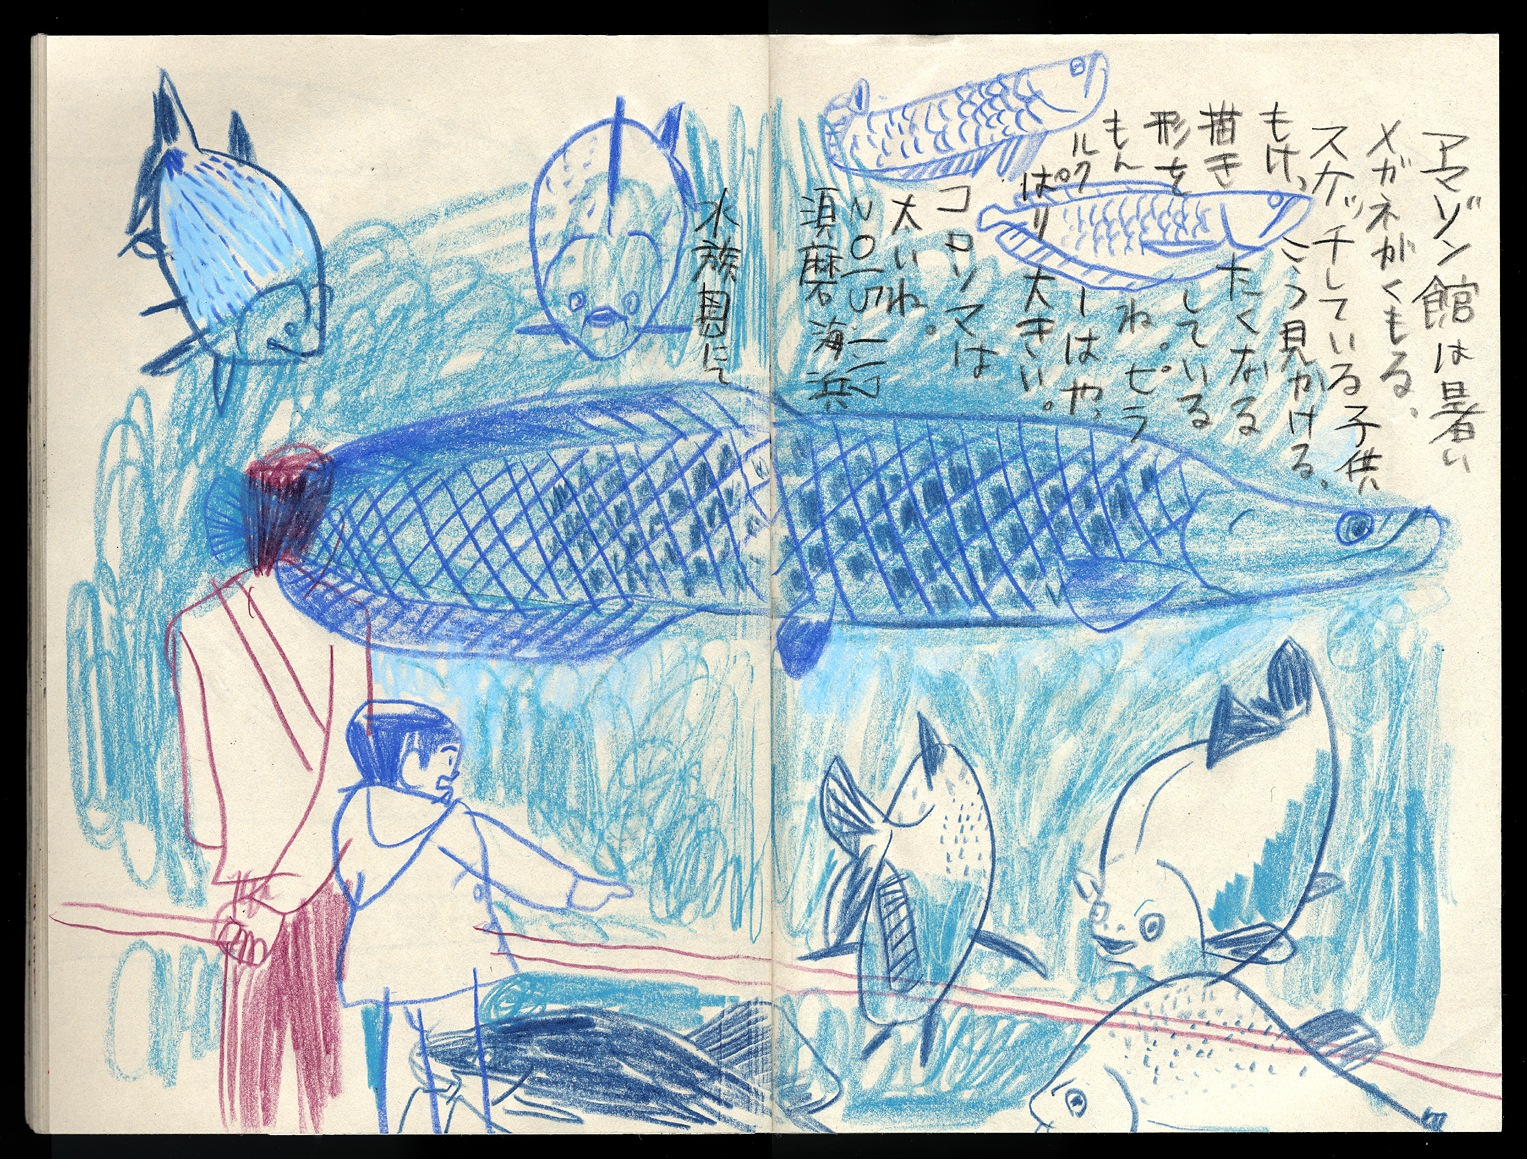 アマゾン館は暑い
メガネがくもる、
スケッチしている子供
もけっこう見かける、
描きたくなる
形をしている
もんね。ピラ
ルクーはやっ
ぱり大きい。
コロソマは
太いね。
2015
須磨海浜
水族園にて